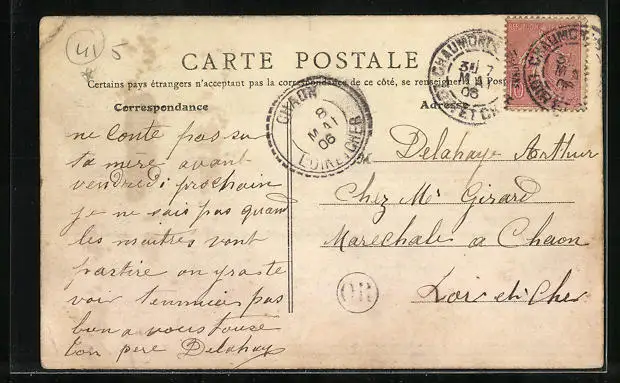 41 5
CARTE POSTALE
Certains pays étrangers n'acceptant pas la correspondance de ce côté, se renseigner à la Poste
Correspondance
Adresse
CHAUMONT
7
MAI
06
CHAON
8
MAI
06
LOIR ET CHER
ne conte pas su
ta mere avant
vendredi prochain
je ne sais pas quand
les maitres vont
partire on
voir pas
bien a vous tous
ton pere Delahay
Delahaye Arthur
Chez Mr Girard
Marechale a Chaon
Loir et Cher
OR